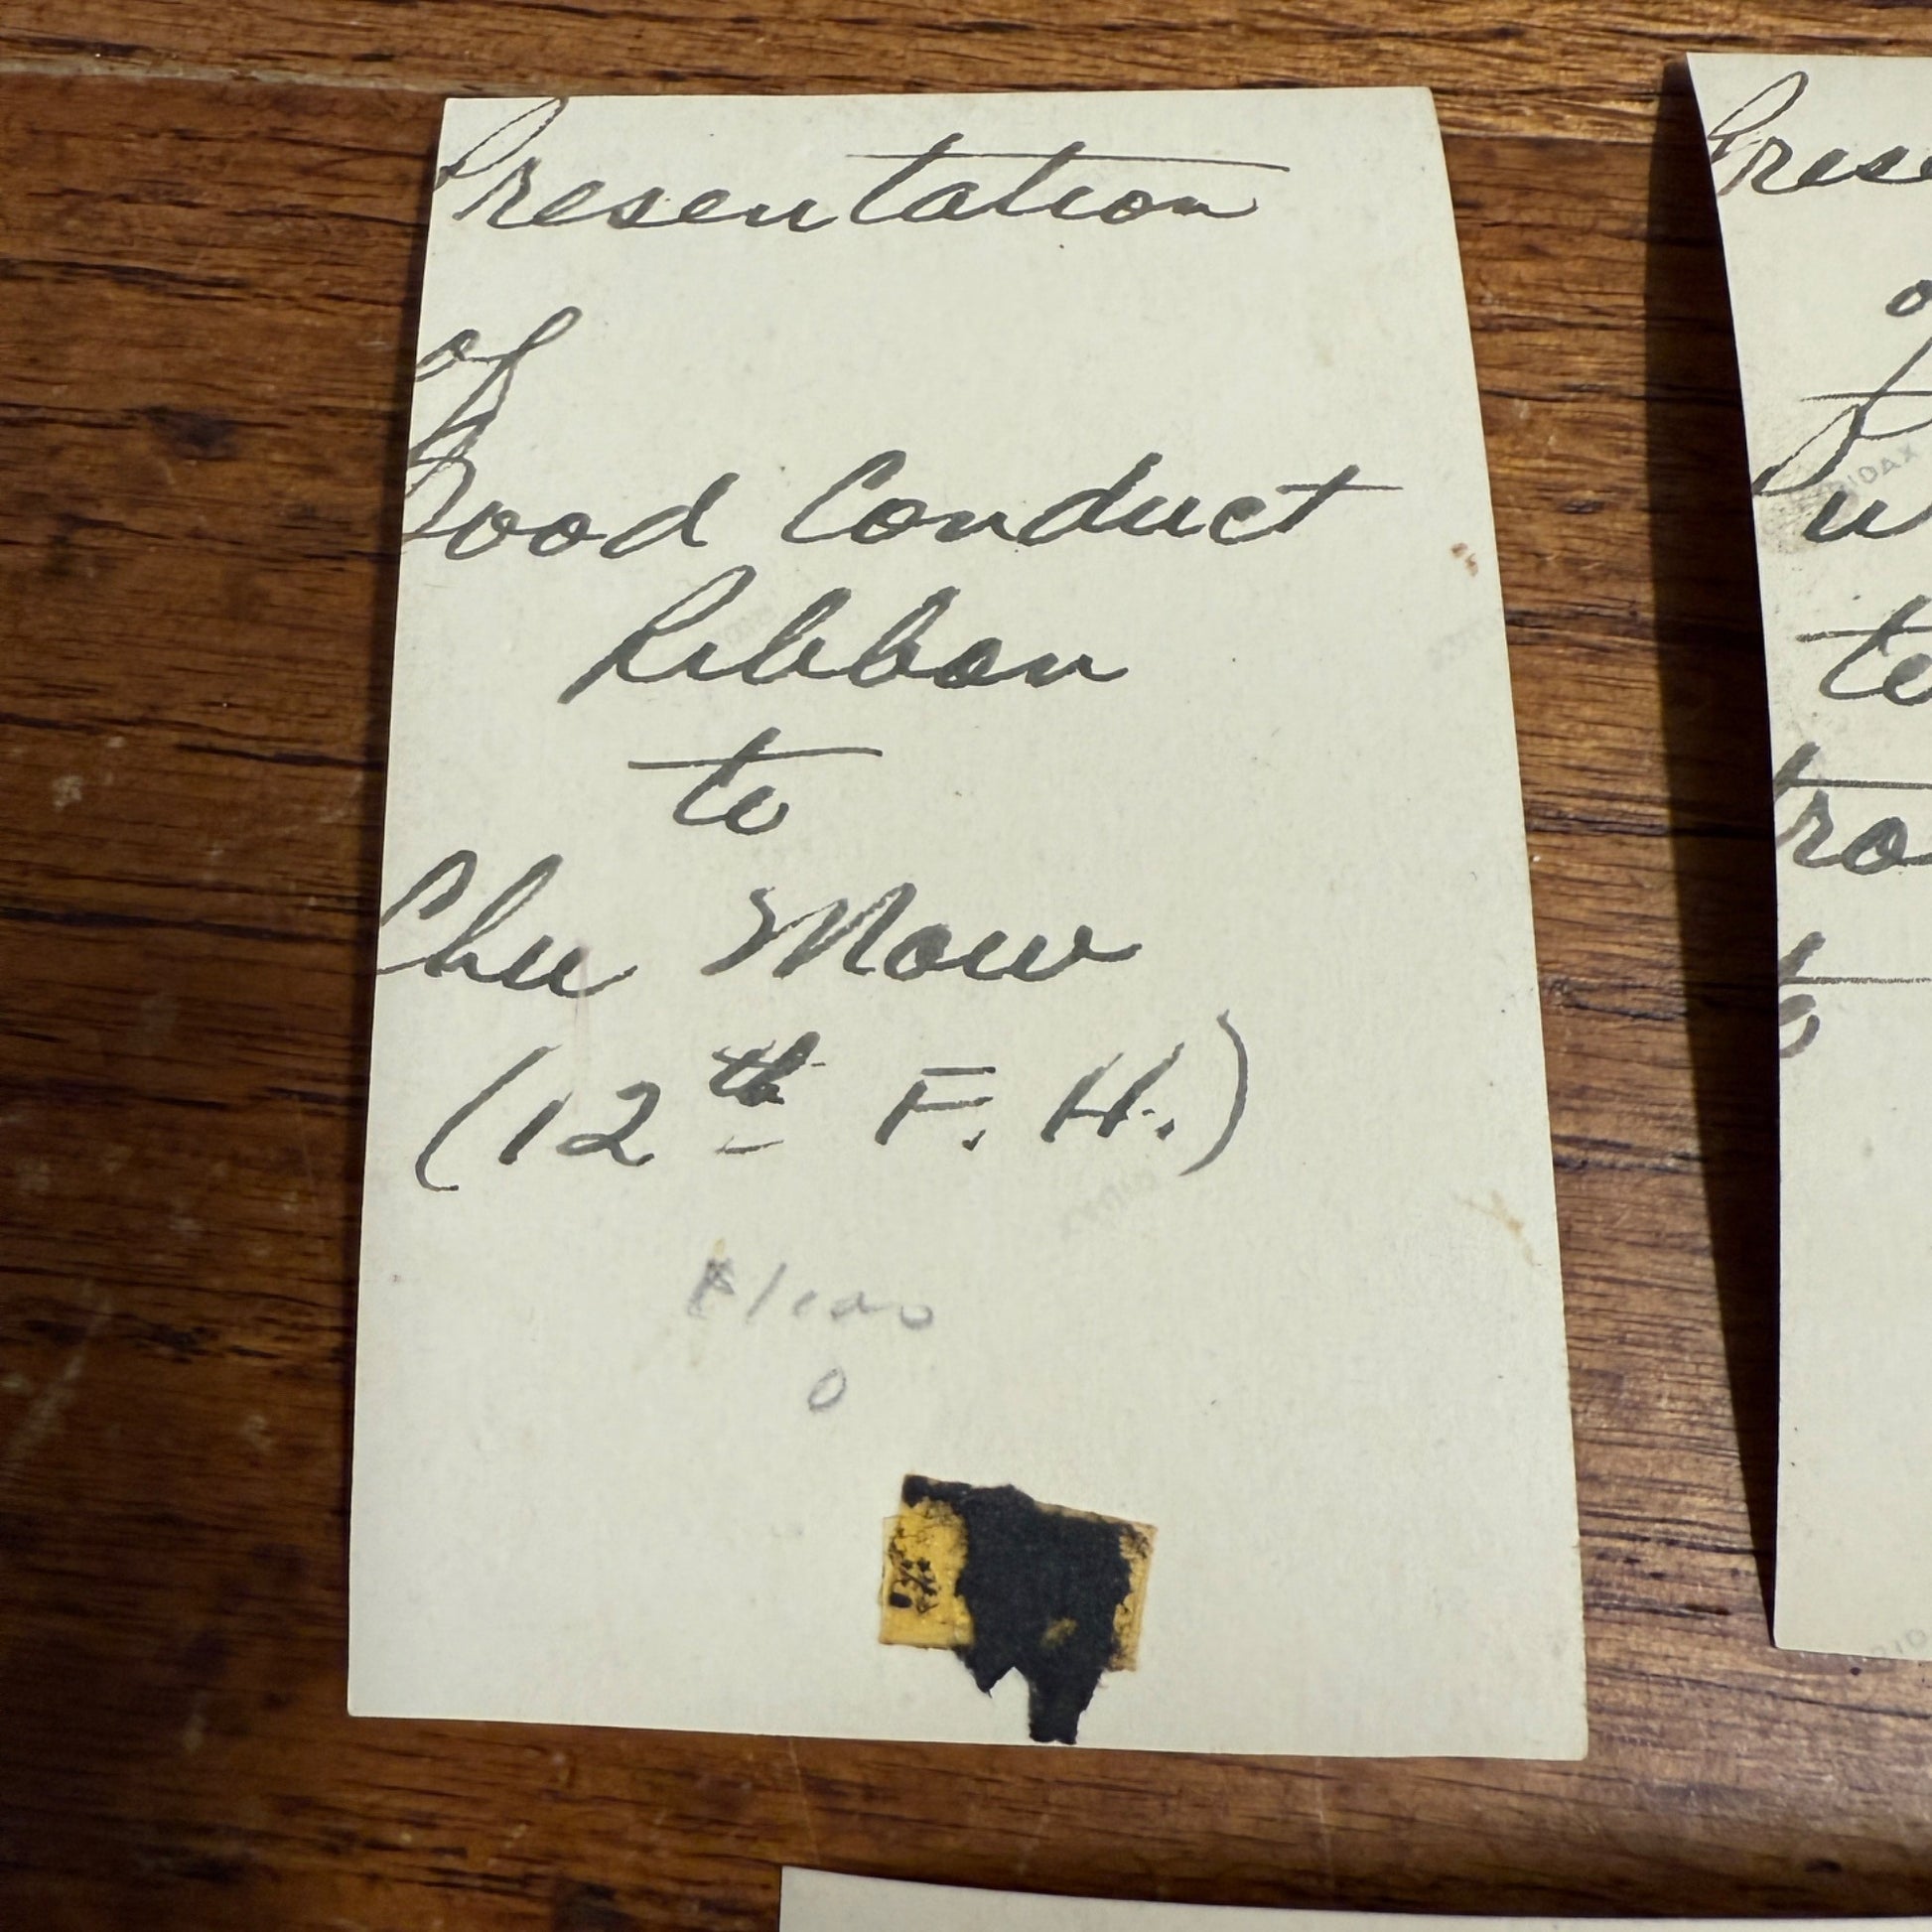 Presentation
of
Good Conduct
Ribbon
to
Chu Mow
(12th F. H.)
Prese
to